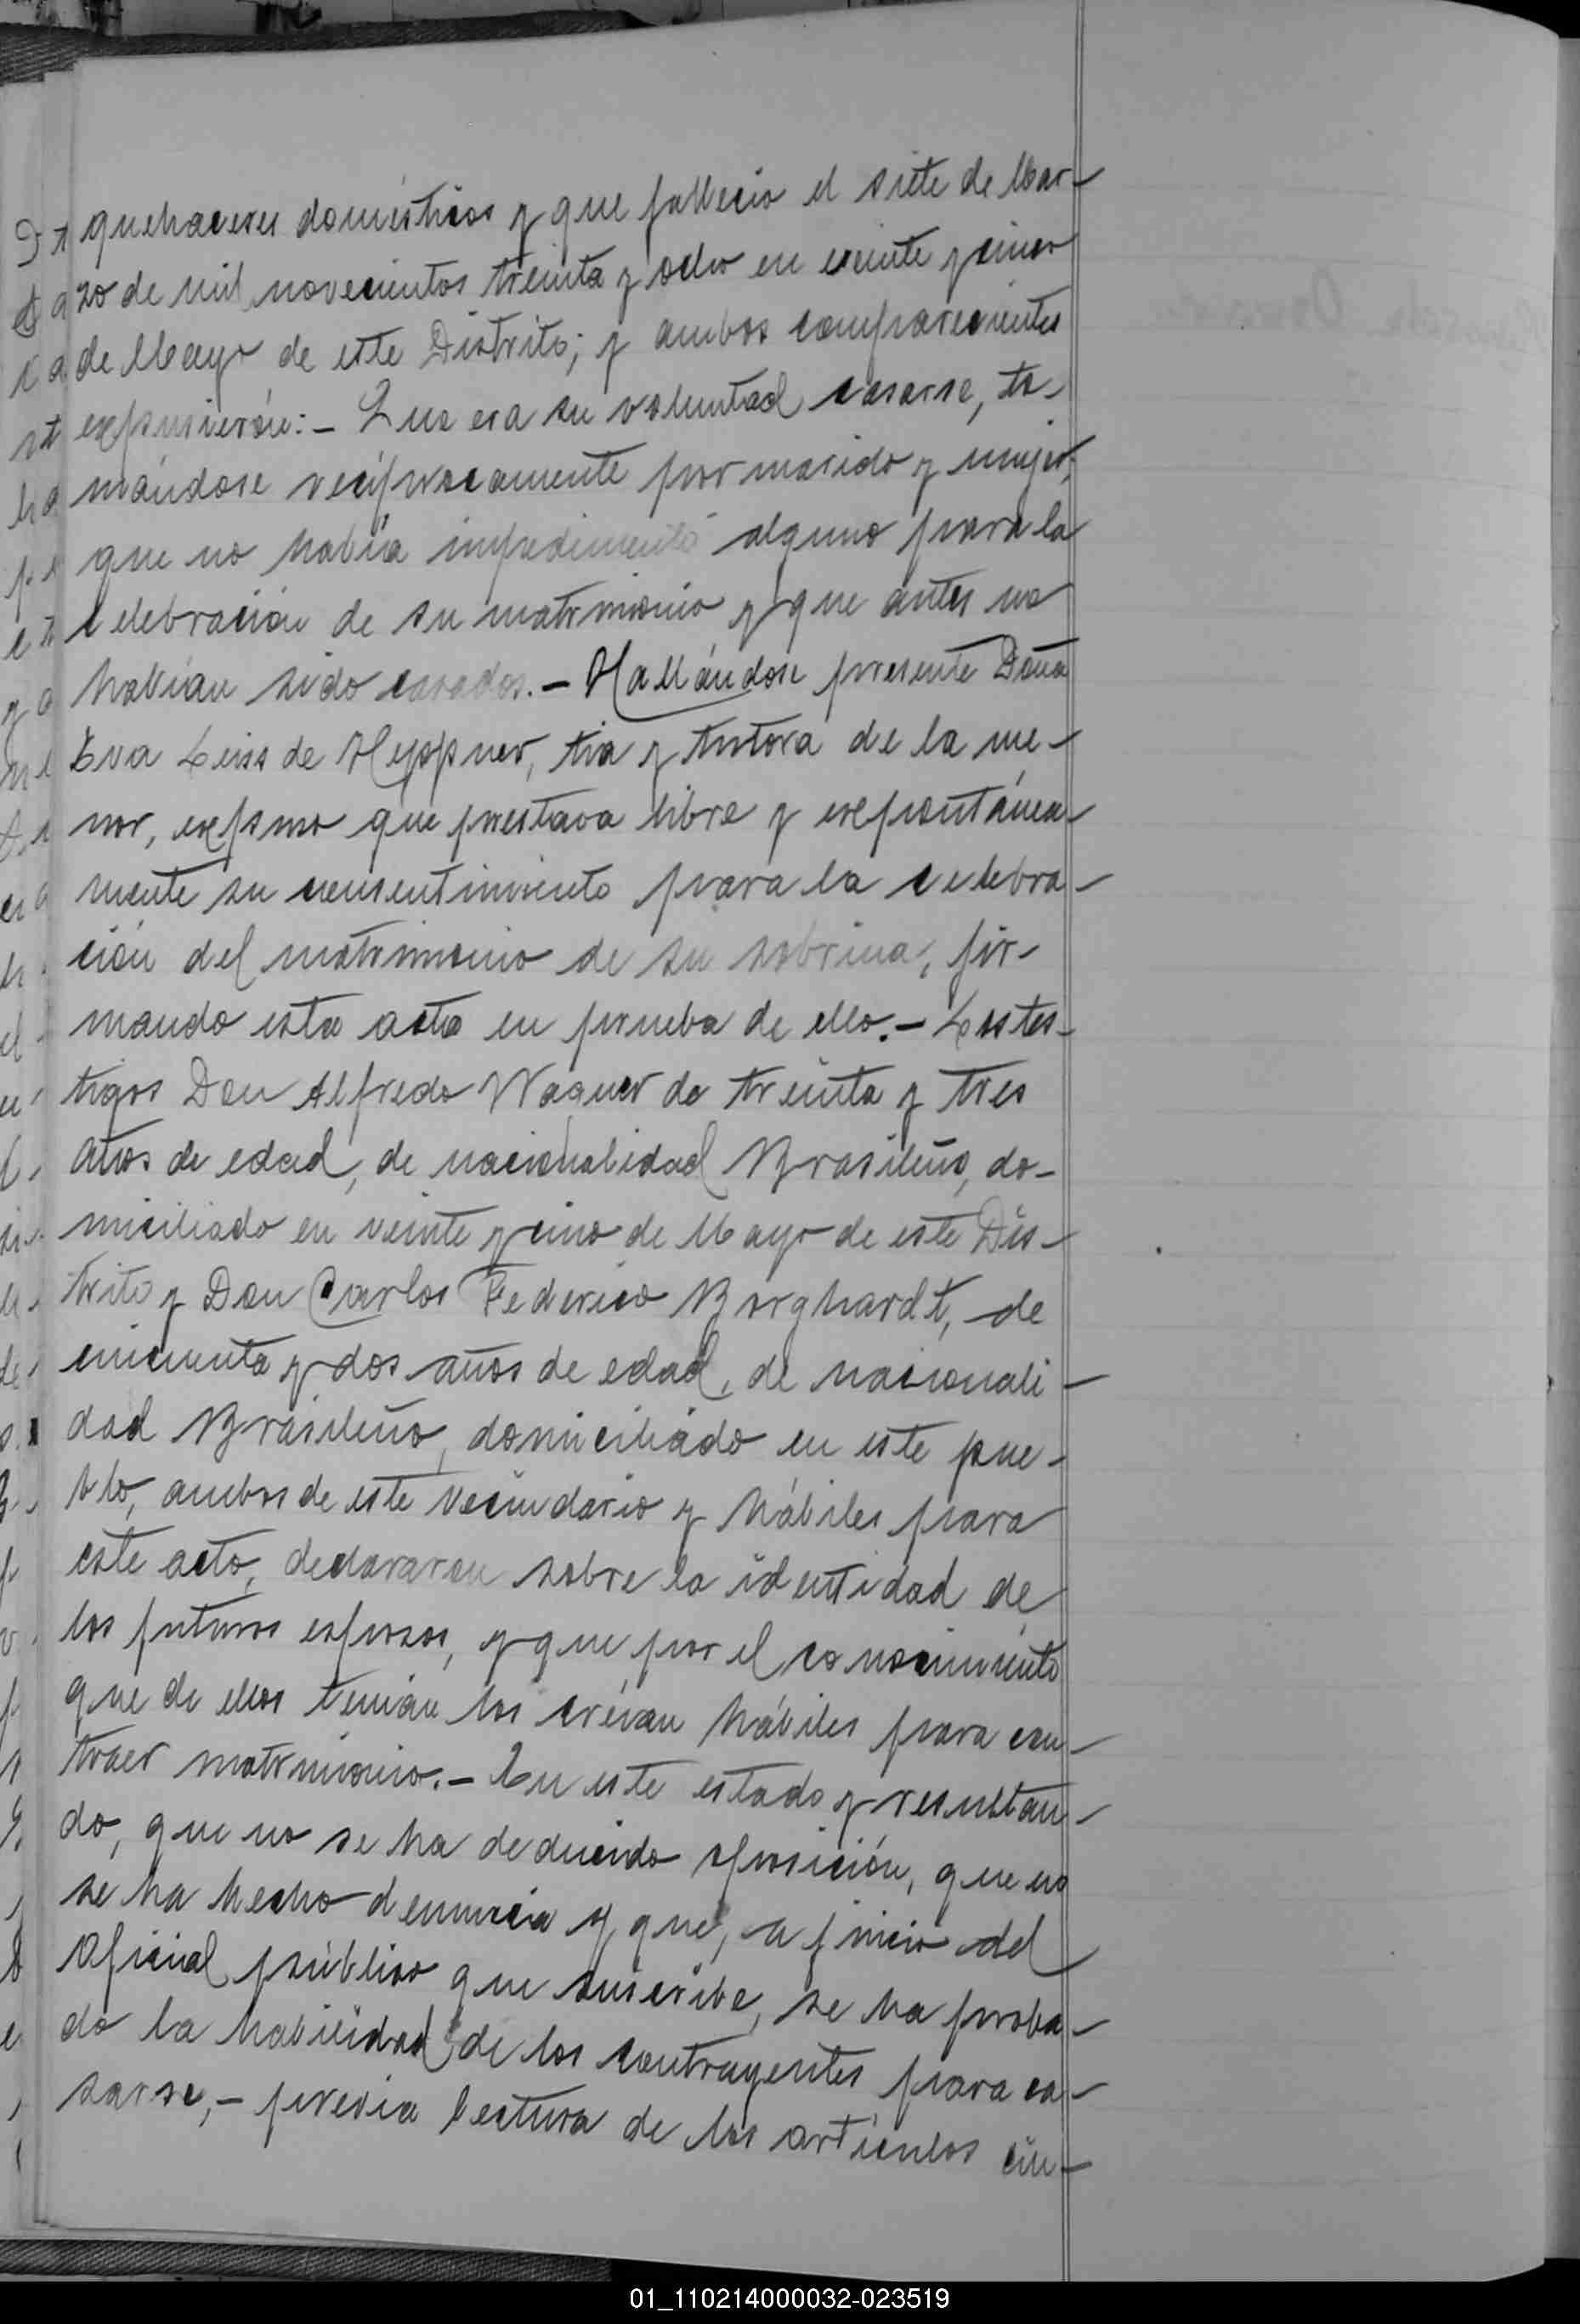 quehaceres domésticos y que fallecio el siete de Mar-
zo de mil novecientos treinta y ocho en veinte y cinco
de Mayo de este Distrito; y ambos comparecientes
expusierón:- Que era su voluntad casarse, to-
mándose recíprocamente por marido y mujer,
que no había impedimento alguno para la
celebración de su matrimonio y que antes no
habían sido casados.- Hallándose presente Doña
Eva Leiss de Heppner, tia y tutora de la me-
nor, expuso que prestava libre y expontánea-
mente su consentimiento para la celebra-
ción del matrimonio de su sobrina, fir-
mando esta acta en prueba de ello.- Los tes-
tigos Don Alfredo Wagner de treinta y tres
años de edad, de nacionalidad Brasileño, do-
miciliado en veinte y cinco de Mayo de este Dis-
trito y Don Carlos Federico Borghardt, de
cincuenta y dos años de edad, de nacionali-
dad Brasileño, domiciliado en este pue-
blo, ambos de este vecindario y hábiles para
este acto, declararon sobre la identidad de
los futuros esposos, y que por el conocimiento
que de ellos tenían los créian hábiles para con-
traer matrimonio.- En este estado y resultan-
do, que no se ha deducido oposición, que no
se ha hecho denuncia y que, a juicio del
Oficial público que suscribe, se ha proba-
do la habilidad de los contrayentes para ca-
sarse,- previa lectura de los artículos cin-
01_110214000032-023519